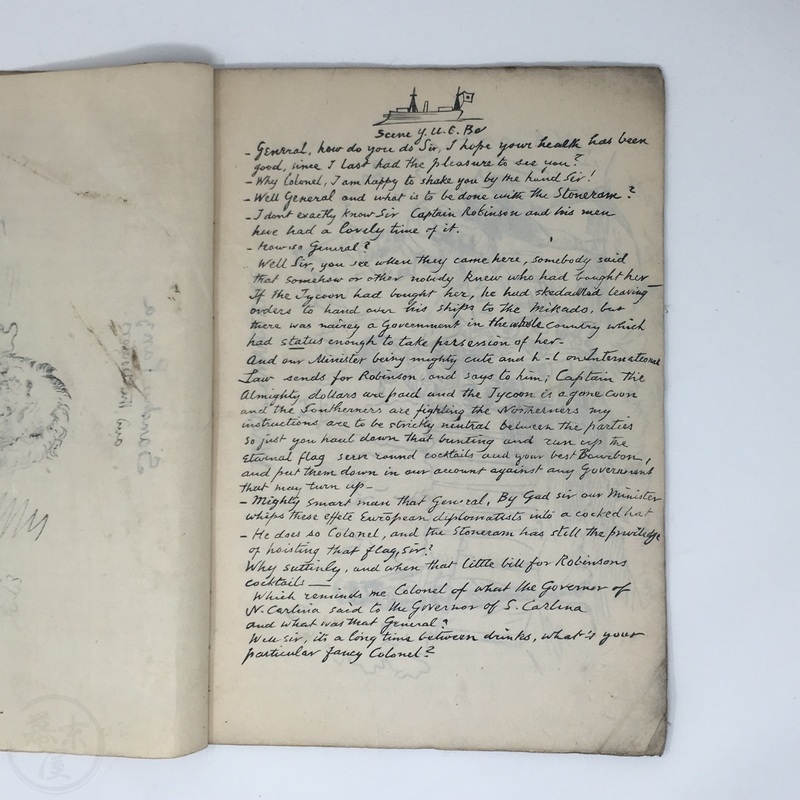 Scene Y.U.E. Bo
- General, how do you do Sir, I hope your health has been
good, since I last had the pleasure to see you?
- Why Colonel, I am happy to shake you by the hand Sir!
- Well General and what is to be done with the Stoneram?
- I dont exactly know Sir Captain Robinson and his men
have had a lovely time of it.
- How so General?
Well Sir, you see when they came here, somebody said
that somehow or other nobody knew who had bought her—
If the Tycoon had bought her, he had skedaddled leaving
orders to hand over his ships to the Mikado, but
there was nairey a Government in the whole country which
had status enough to take persession of her—
And our Minister being mighty cute and h-l on International
Law sends for Robinson, and says to him; Captain the
Almighty dollars are paid and the Tycoon is a gone coon
and the Southerners are fighting the Northerners my
instructions are to be strictly neutral between the parties
so just you haul down that bunting and run up the
Eternal flag serve round cocktails and your best Bourbon,
and put them down in our account against any Government
that may turn up—
- Mighty smart man that General, By Gad sir our Minister
whips these effete European diplomatists into a cocked hat
- He does so Colonel, and the Stoneram has still the priviledge
of hoisting that flag, Sir?
Why suttinly, and when that little bill for Robinsons
cocktails —
Which reminds me Colonel of what the Governor of
N. Carlina said to the Governor of S. Carlina
and what was that General?
Well Sir, its a long time between drinks, what's your
particular fancy Colonel?
幕末屋